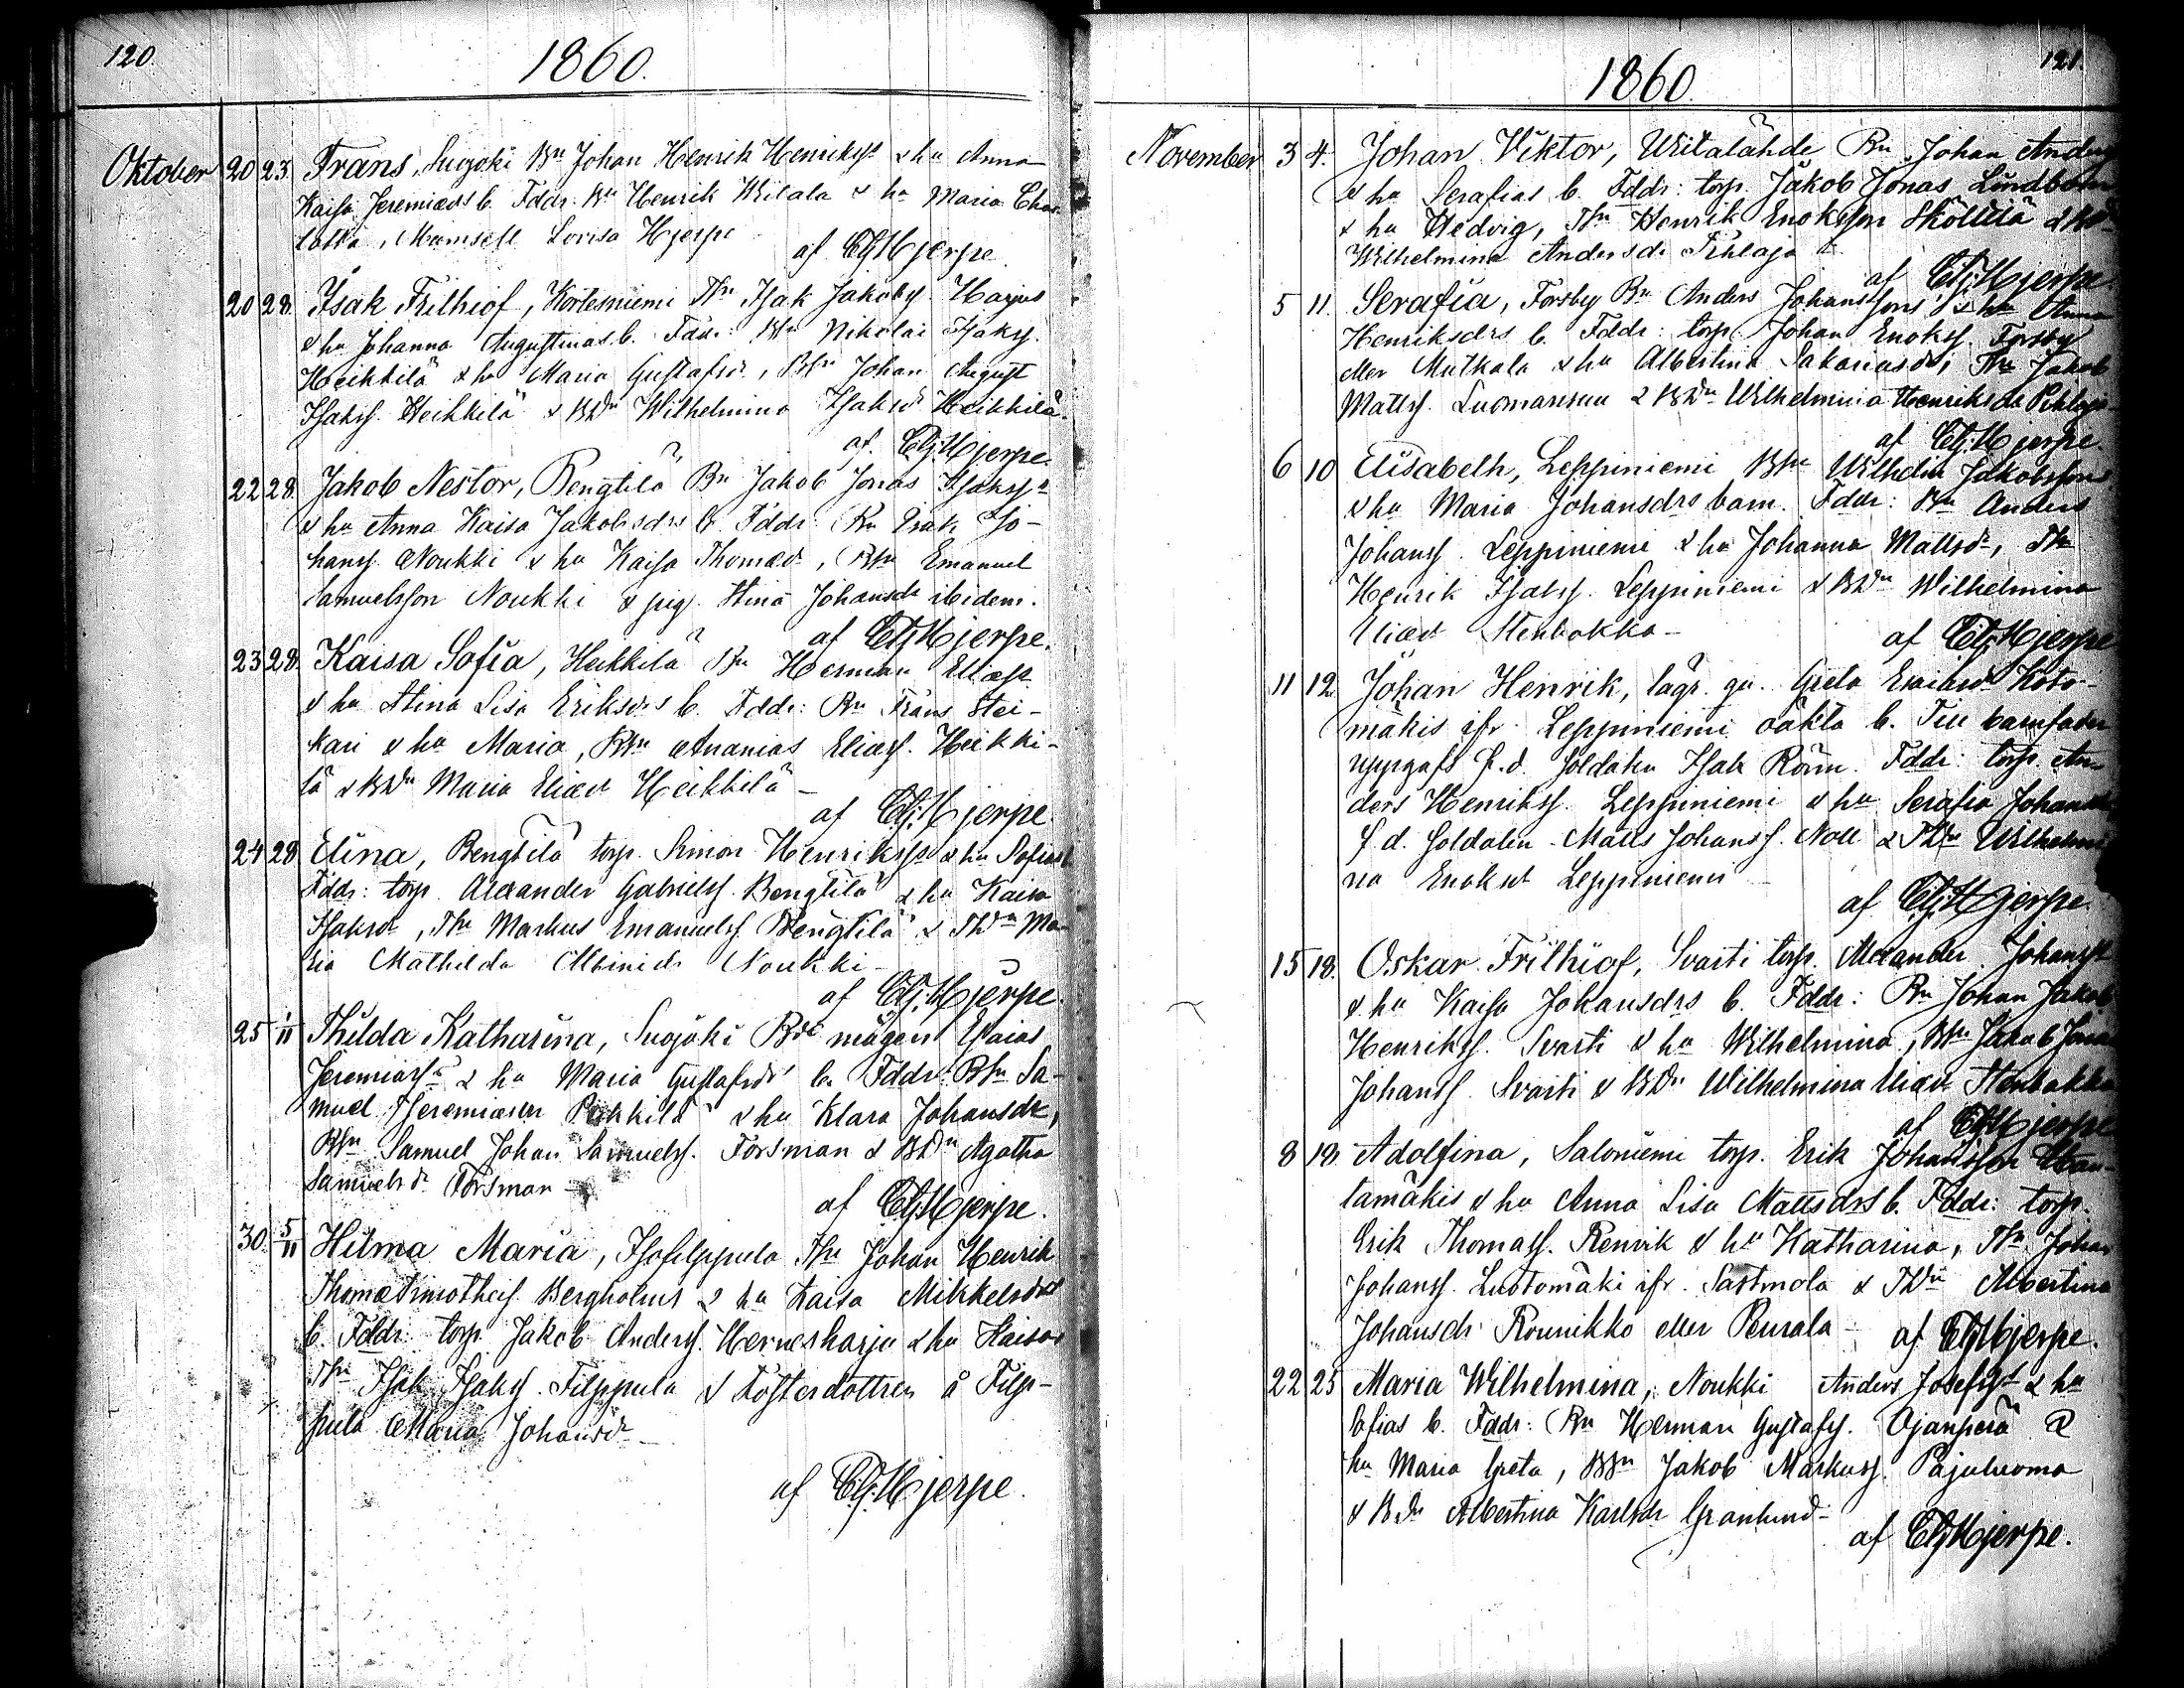 120.
1860.
Oktober 20 23 Frans, Suojoki Bn Johan Henrik Henrikss & hu Anna
Kaisa Jeremiæds b. Fddr: Bn Henrik Witala & hu Maria Char
lotta, Mamsell Lovisa Hjerpe
af CGHjerpe
20 28. Isak Frithiof, Kortesniemi Isak Jakobs. Harjus
& hu Johanna Augustinas b. Fddr: Nikolai Isakss.
Heikkilä & hu Maria Gustafsd., Johan August
Isakss. Heikkilä & BDn Wilhelmina Isaksdr Heikkilä
af. CGHjerpe.
22 28. Jakob Nestor, Bengtilä Bn Jakob Jonas Isakss
& hu Anna Kaisa Jakobsdrs b. Fddr: Bn Isak Jo-
hanss. Noukki & hu Kaisa Thomæd., BSn Emanuel
Samuelsson Noukki & pig. Stina Johansdr ibidem.
af CGHjerpe.
23 28. Kaisa Sofia, Heikkilä Bn Herman Eliæss.
& hu Stina Lisa Eriksdrs b. Fddr: Bn Frans Stei-
kari & hu Maria, BSn Ananias Eliass. Heikki-
lä & BDn Maria Eliæd Heikkilä –
af CGHjerpe.
24 28 Elina, Bengtilä torp. Simon Henrikss & hu Sofias b
Fddr: torp. Alexander Gabrielss. Bengtilä & hu Kaisa
Isaksd, Markus Emanuelss. Bengtilä & TDn Ma-
ria Mathilda Albinid. Noukki –
af CGHjerpe.
25 1/11 Thilda Katharina, Suojoki mågen Esaias
Jeremiass & hu Maria Gustafsdr b. Fddr: BSn Sa-
muel Jeremiæson Pukkilä & hu Klara Johansdr,
BSn Samuel Johan Samuelss. Forsman & BDn Agatha
Samuelsdr. Forsman –
af CGHjerpe.
30. 5/11 Hilma Maria, Isofilppula Johan Henrik
Thomæ Timotheis. Bergholms & hu Kaisa Mikkelsdrs
b. Fddr: torp. Jakob Anderss. Hernesharju & hu Kaisa
Isak Isakss. Filppula & Fosterdottren å Filp-
pula Maria Johansdr –
af CGHjerpe.
121.
1860.
November 3 4. Johan Viktor, Witalähde Bn Johan Anders
& hu Serafias b. Fddr: torp. Jakob Jonas Lindbom
& hu Hedvig, Henrik Enoksson Sköttilä &
Wilhelmina Andersdr Pihlaja
af CGHjerpe
5 11. Serafia, Forsby Bn Anders Johanssons & hu Anna
Henriksdrs b. Fddr: torp. Johan Enokss. Forsby
eller Mutkala & hu Albertina Sakariasdr, Jakob
Mattss. Luomansuu & BDn Wilhelmina Henriksdr Pihlaja
af CGHjerpe
6 10 Elisabeth, Leppiniemi BSn Wilhelm Jakobsson
& hu Maria Johansdrs barn. Fddr: Bn Anders
Johanss. Leppiniemi & hu Johanna Mattsdr,
Henrik Isakss. Leppiniemi & BDn Wilhelmina
Eliæd Stenbakka –
af CGHjerpe
11 12 Johan Henrik, lägr. qv. Greta Esaiæd Koto-
mäkis ifr. Leppiniemi oäkta b. Till barnfader
uppgafs f.d. soldaten Isak Rönn. Fddr: torp. An-
ders Henrikss. Leppiniemi & hu Serafia Johansdr
f. d. Soldaten Matts Johanss. Noll & TDn Wilhelmi-
na Enoksd Leppiniemi –
af CGHjerpe.
15 18. Oskar Frithiof, Svarti torp. Alexander Johanss
& hu Kaisa Johansdrs b. Fddr: Bn Johan Jakob
Henrikss. Svarti & hu Wilhelmina, BSn Jakob Jonas
Johanss. Svarti & BDn Wilhelmina Eliæd Stenbakka
af CGHjerpe
8 18. Adolfina, Saloniemi torp. Erik Johansson
tamäkis & hu Anna Lisa Mattsdrs b. Fddr: torp.
Erik Thomass. Renvik & hu Katharina, Johan
Johanss. Luotomäki ifr. Sastmola & TDn Albertina
Johansdr Rounikko eller Peurala – af CGHjerpe.
22 25 Maria Wilhelmina, Noukki Anders Josefss & hu
Sofias b. Fddr: Bn Herman Gustafss. Ojanperä &
hu Maria Greta, BSn Jakob Markuss. Pajuluoma
& BDn Albertina Karlsdr Granlund –
af CGHjerpe.